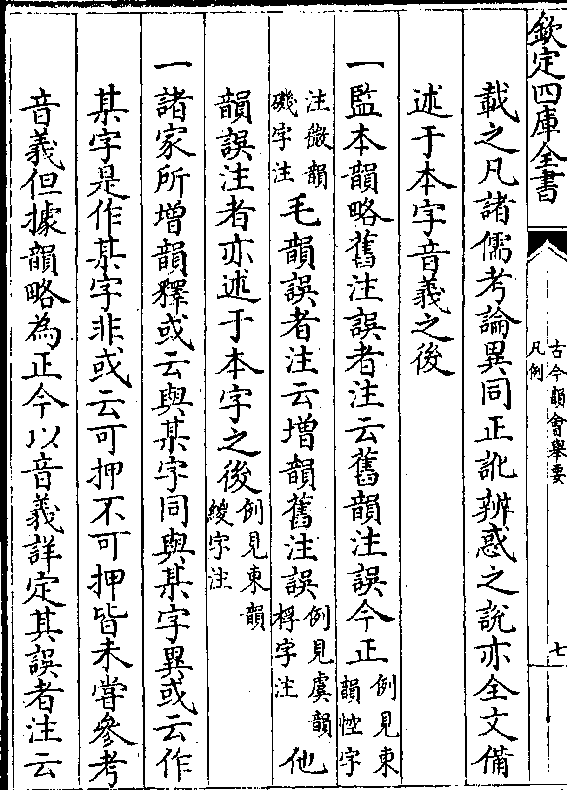 欽定四庫全書
古今韻會舉要
凡例
七
載之凡諸儒考論異同正訛辨惑之說亦全文備
述于本字音義之後
一監本韻略舊注誤者注云舊韻注誤今正例見東韻悾字
注微韻磯字注毛韻誤者注云增韻舊注誤例見虞韻桴字注他
韻誤注者亦述于本字之後例見東韻緵字注
一諸家所增韻釋或云與某字同與某字異或云作
某字是作某字非或云可押不可押皆未嘗參考
音義但據韻略為正今以音義詳定其誤者注云